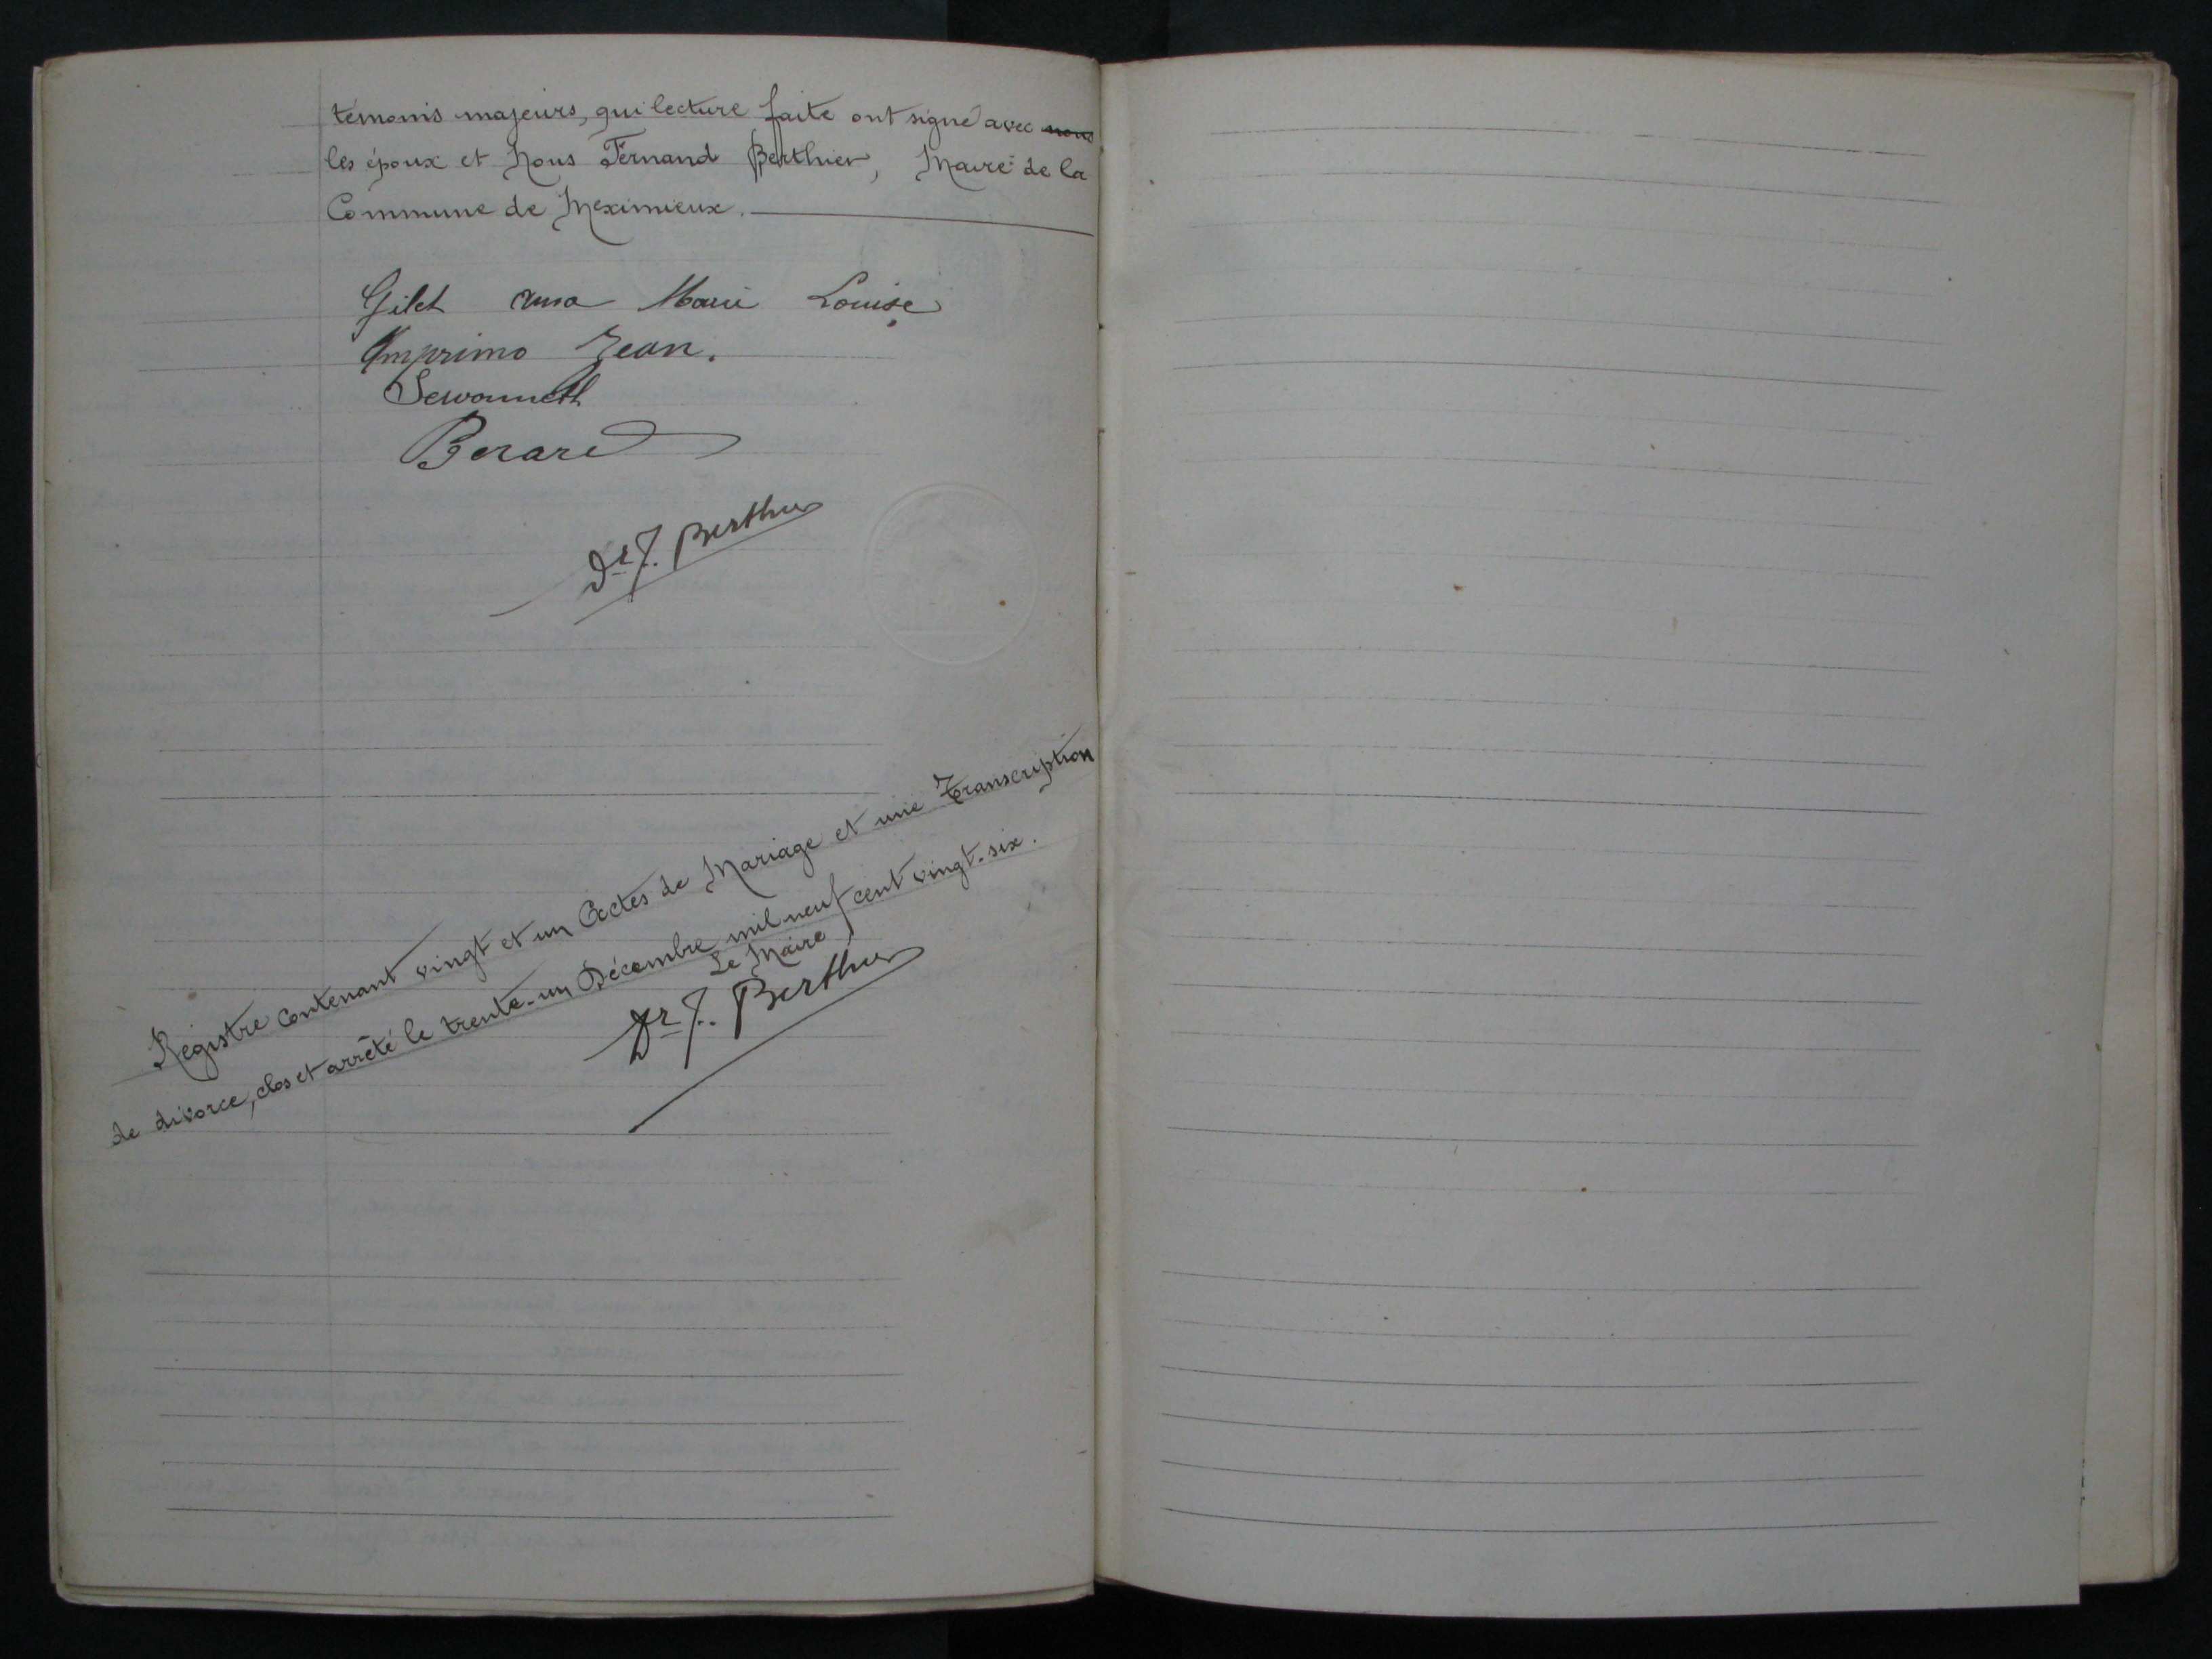 témoins majeurs, qui lecture faite ont signé avec nous
les époux et Nous Fernand Berthier, Maire de la
Commune de Meximieux.
Gilet Marie Louise
Imprimo Jean.
Berard
Dr F. Berthier
Registre contenant vingt et un Actes de Mariage et une Transcription
de divorce, clos et arrêté le trente-un Décembre mil neuf cent vingt-six.
Le Maire
Dr F. Berthier